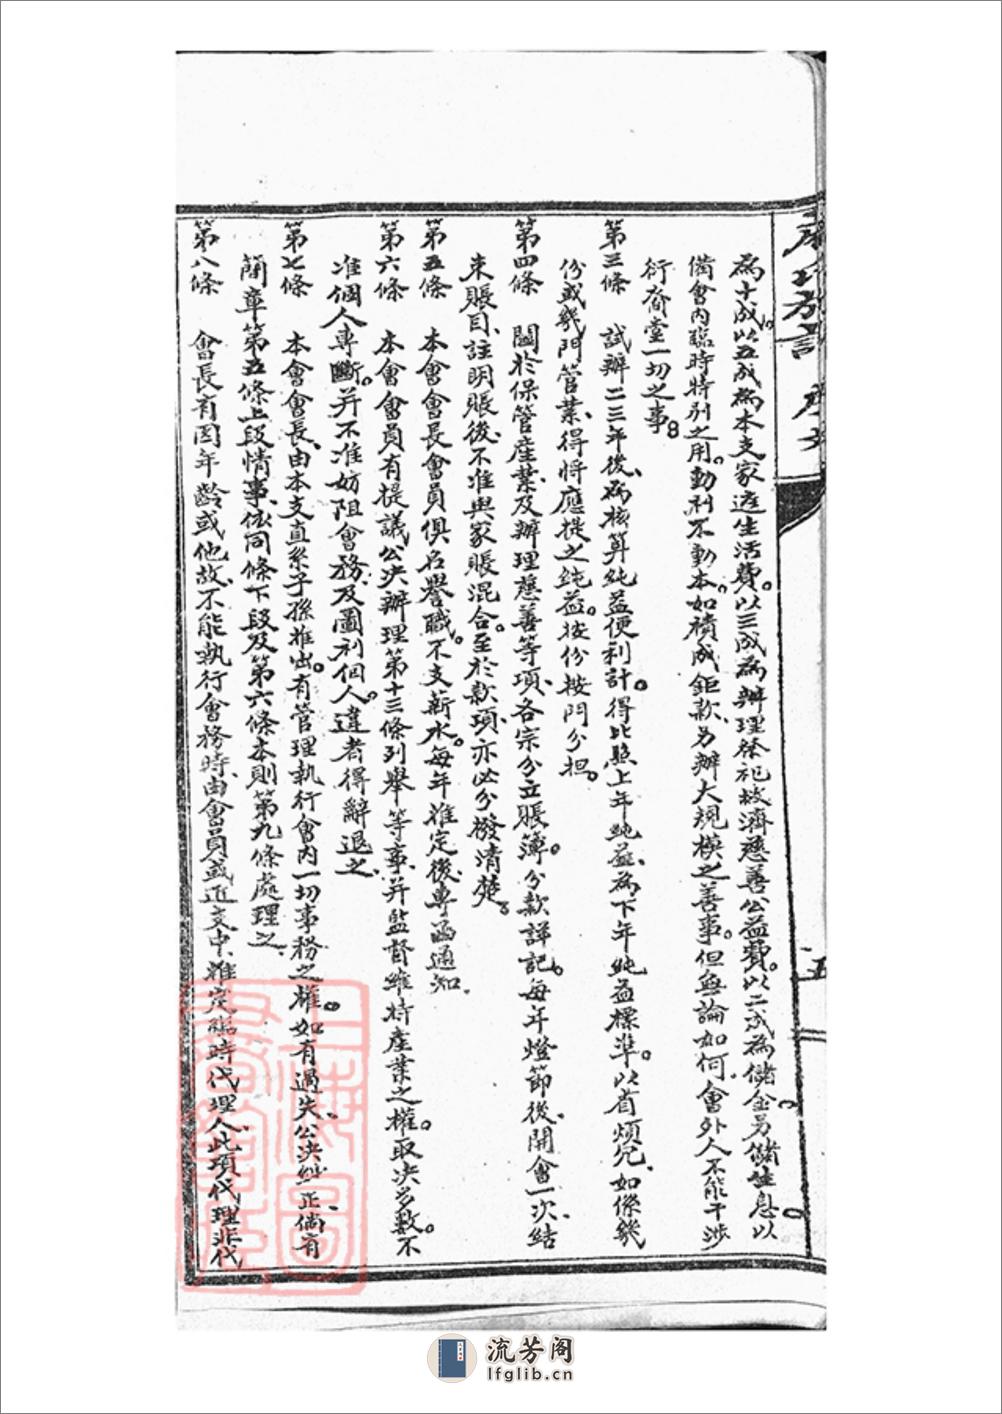 為十成。以五成為本支家庭生活費。以三成為辦理祭祀救濟慈善公益費。以二成為儲金另儲生息以
備會內臨時特別之用。動利不動本。如積成鉅款、另辦大規模之善事。但無論如何、會外人不能干涉
衍裔堂一切之事。
第三條　試辦二三年後、為核算純益便利計。得比照上年純益、為下年純益標準。以省煩冗、如係幾
份或幾門管業、得將應提之純益。按份按門分担。
第四條　關於保管產業、及辦理慈善等項、各宗分立賬簿。分款詳記。每年燈節後、開會一次、結
束賬目、註明賬後、不准與家賬混合。至於款項、亦必分撥清楚。
第五條　本會會長會員俱名譽職。不支薪水。每年推定後、專函通知。
第六條　本會會員有提議公決辦理第十三條列舉等事、并監督維持產業之權。取決多數。不
准個人專斷。并不准妨阻會務、及圖利個人。違者得辭退之、
第七條　本會會長、由本支直系子孫推出。有管理執行會內一切事務之權。如有過失、公決糾正、倘有
簡章第五條上段情事、依同條下段及第六條本則第九條處理之、
第八條　會長有因年齡或他故、不能執行會務時、由會員或近支中、推定臨時代理人、此項代理非代
五
流芳阁
lfglib.cn